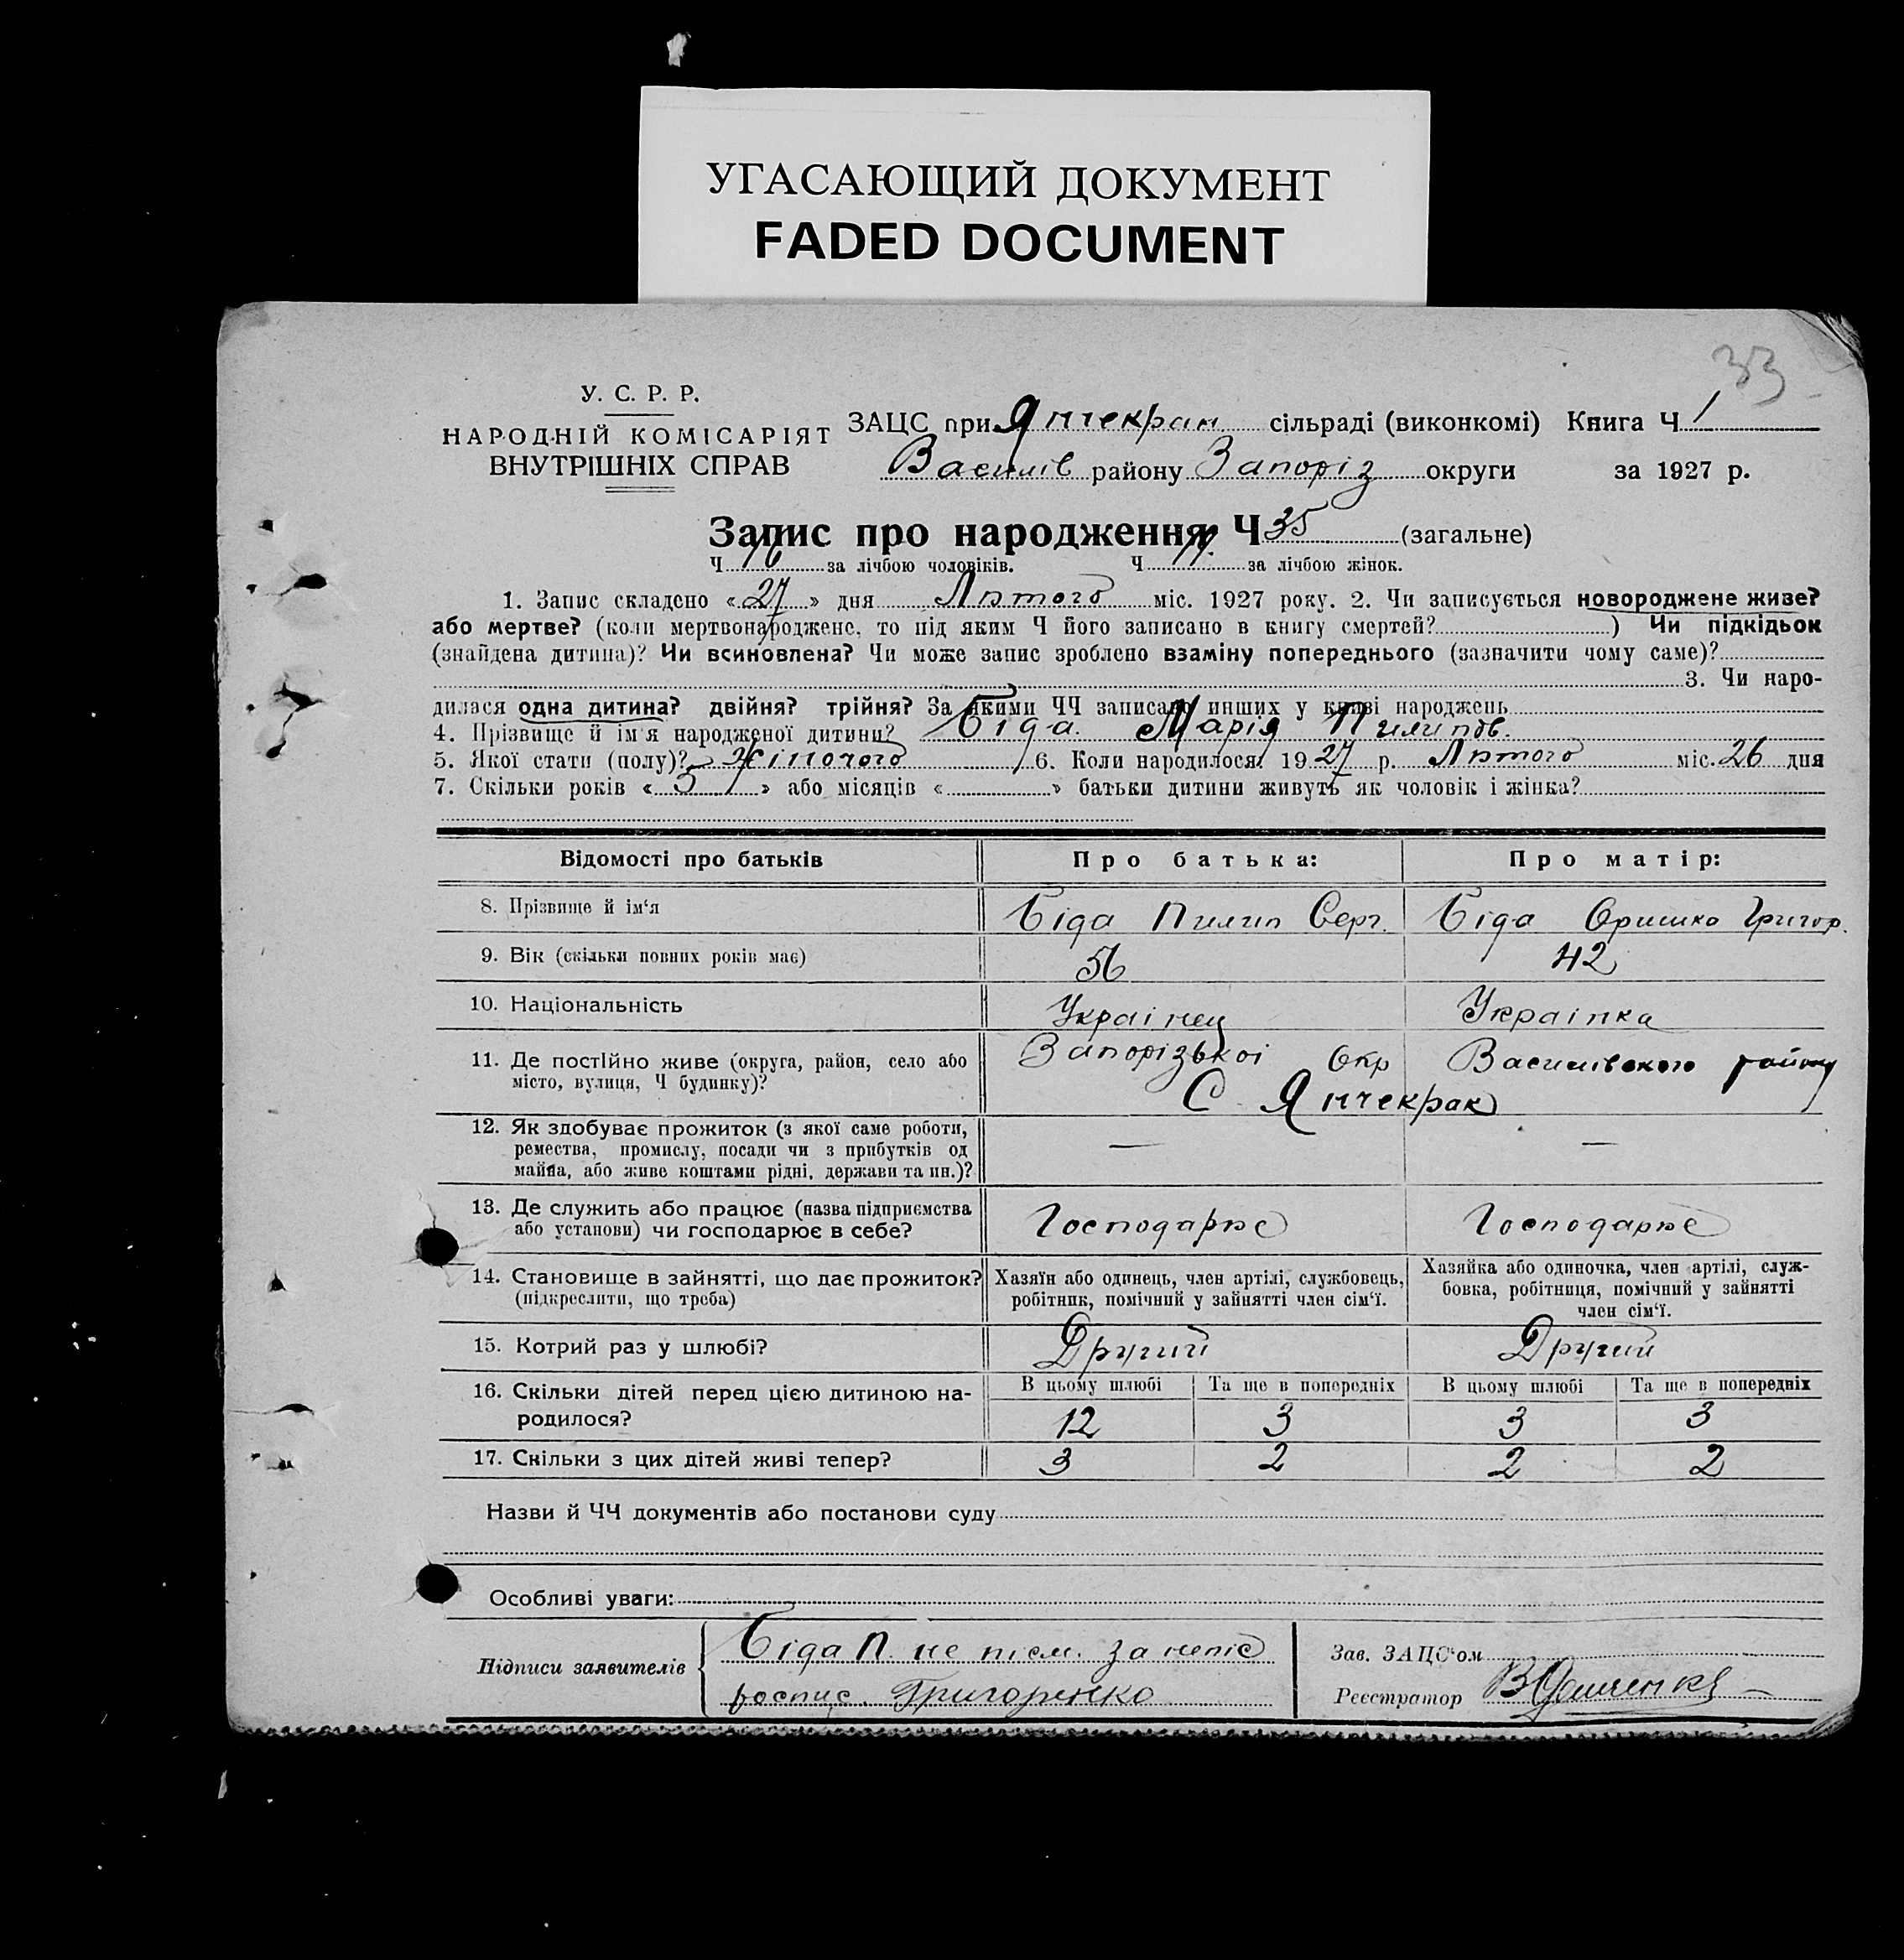 УГАСАЮЩИЙ ДОКУМЕНТ
FADED DOCUMENT
33
У. С. Р. Р.
НАРОДНІЙ КОМІСАРІЯТ
ВНУТРІШНІХ СПРАВ
ЗАЦС при Янчекрак сільраді (виконкомі) Книга Ч 1
Василів району Запоріз округи за 1927 р.
Запис про народження Ч 35 (загальне)
Ч 16 за лічбою чоловіків. Ч 19 за лічбою жінок.
1. Запис складено « 27 » дня Лютого міс. 1927 року. 2. Чи записується новороджене живе?
або мертве? (коли мертвонароджене, то під яким Ч його записано в книгу смертей? ) Чи підкідьок
(знайдена дитина)? Чи всиновлена? Чи може запис зроблено взаміну попереднього (зазначити чому саме)?
3. Чи наро-
дилася одна дитина? двійня? трійня? За якими ЧЧ записано инших у книзі народжень
4. Прізвище й ім'я народженої дитини? Біда Марія Пилипов.
5. Якої стати (полу)? Жіночого 6. Коли народилося 19 27 р. Лютого міс. 26 дня
7. Скільки років « 5 » або місяців « » батьки дитини живуть як чоловік і жінка?
Відомості про батьків Про батька: Про матір:
8. Прізвище й ім'я Біда Пилип Серг. Біда Оришка Григор.
9. Вік (скільки повних років має) 56 42
10. Національність Украінец Украінка
11. Де постійно живе (округа, район, село або Запорізькоі Окр Василівского району
місто, вулиця, Ч будинку)? С Янчекрак
12. Як здобуває прожиток (з якої саме роботи, — —
ремества, промислу, посади чи з прибутків од
майна, або живе коштами рідні, держави та ин.)?
13. Де служить або працює (назва підприємства Господарює Господарює
або установи) чи господарює в себе?
14. Становище в зайнятті, що дає прожиток? Хазяїн або одинець, член артілі, службовець, Хазяйка або одиночка, член артілі, служ-
(підкреслити, що треба) робітник, помічний у зайнятті член сім'ї. бовка, робітниця, помічний у зайнятті
член сім'ї.
15. Котрий раз у шлюбі? Другий Другий
16. Скільки дітей перед цією дитиною на- В цьому шлюбі Та ще в попередніх В цьому шлюбі Та ще в попередніх
родилося? 12 3 3 3
17. Скільки з цих дітей живі тепер? 3 2 2 2
Назви й ЧЧ документів або постанови суду
Особливі уваги:
Підписи заявителів Біда П. не писм. за непіс Зав. ЗАЦС'ом
роспис. Григоренко Реєстратор